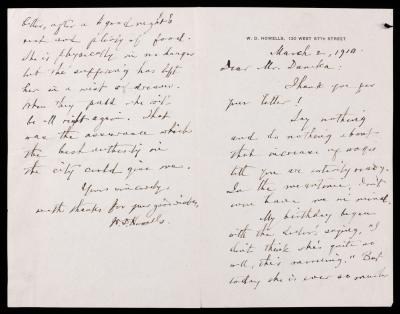 W. D. HOWELLS, 130 WEST 57TH STREET
March 2, 1910.
Dear Mr. Duneka:
Thank you for
your letter!
Say nothing
and do nothing about
that increase of wages
till you are entirely ready.
In the meantime, don't
have me in mind.
My birthday began
with the doctor's saying, "I
don't think she's quite so
well, this morning." But
today she is ever so much
better, after a good night's
rest and plenty of food.
She is physically in no danger
but the suffering has left
her in a mist of dreams.
When they pass she will
be all right again. That
was the assurance which
the best authority in
the city could give me.
Yours sincerely,
with thanks for your good wishes,
W. D. Howells.